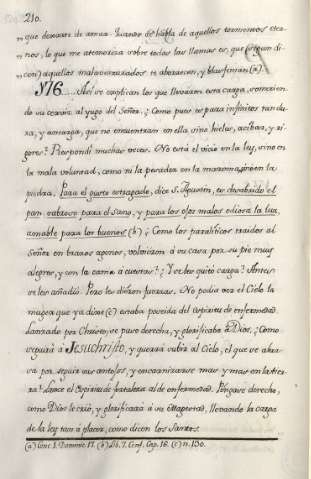 210.
que dexaron de amar. Quando se habla de aquellos tormentos eter-
nos, lo que me atemoriza sobre todas las llamas es, que (segun di-
cen) aquellos malaventurados te aborrecen, y blasfeman (a).
716. Asi se explican los que llevaron esta carga, sometien-
do su cerviz al yugo del Señor. ¿Como pues es para infinitos tan du-
ra, y amarga, que no encuentran en ella sino hielos, acibar, y ri-
gores? Respondí muchas veces. No está el vicio en la ley, sino en
la mala voluntad, como ni la pesadez en la mano, sino en la
piedra. Para el gusto estragado, dice S. Agustin, es desabrido el
pan sabroso para el sano, y para los ojos malos odiosa la luz,
amable para los buenos (b). ¿Como los paraliticos traidos al
Señor en brazos agenos, volvieron á su casa por su pie muy
alegres, y con la cama á cuestas? ¿Y se les quitó carga? Antes
se les añadió. Pero les dieron fuerzas. No podia ver el Cielo la
muger que ya dixe (c) estaba poseida del espiritu de enfermedad.
Sanada por Christo, se puso derecha, y glorificaba á Dios. ¿Como
seguirá á Jesuchristo, y querrá subir al Cielo, el que se abra-
za por seguir sus antojos, y encarnizarse mas y mas en la tier-
ra? Lance el Espiritu de fortaleza al de enfermedad. Pongase derecho,
como Dios le crió, y glorificará á su Magestad, llevando la carga
de la ley tan á placer, como dicen los Santos.
(a) Conc. 1. Dominic. 17. (b) Lib. 7. Conf. Cap. 16. (c) n. 130.